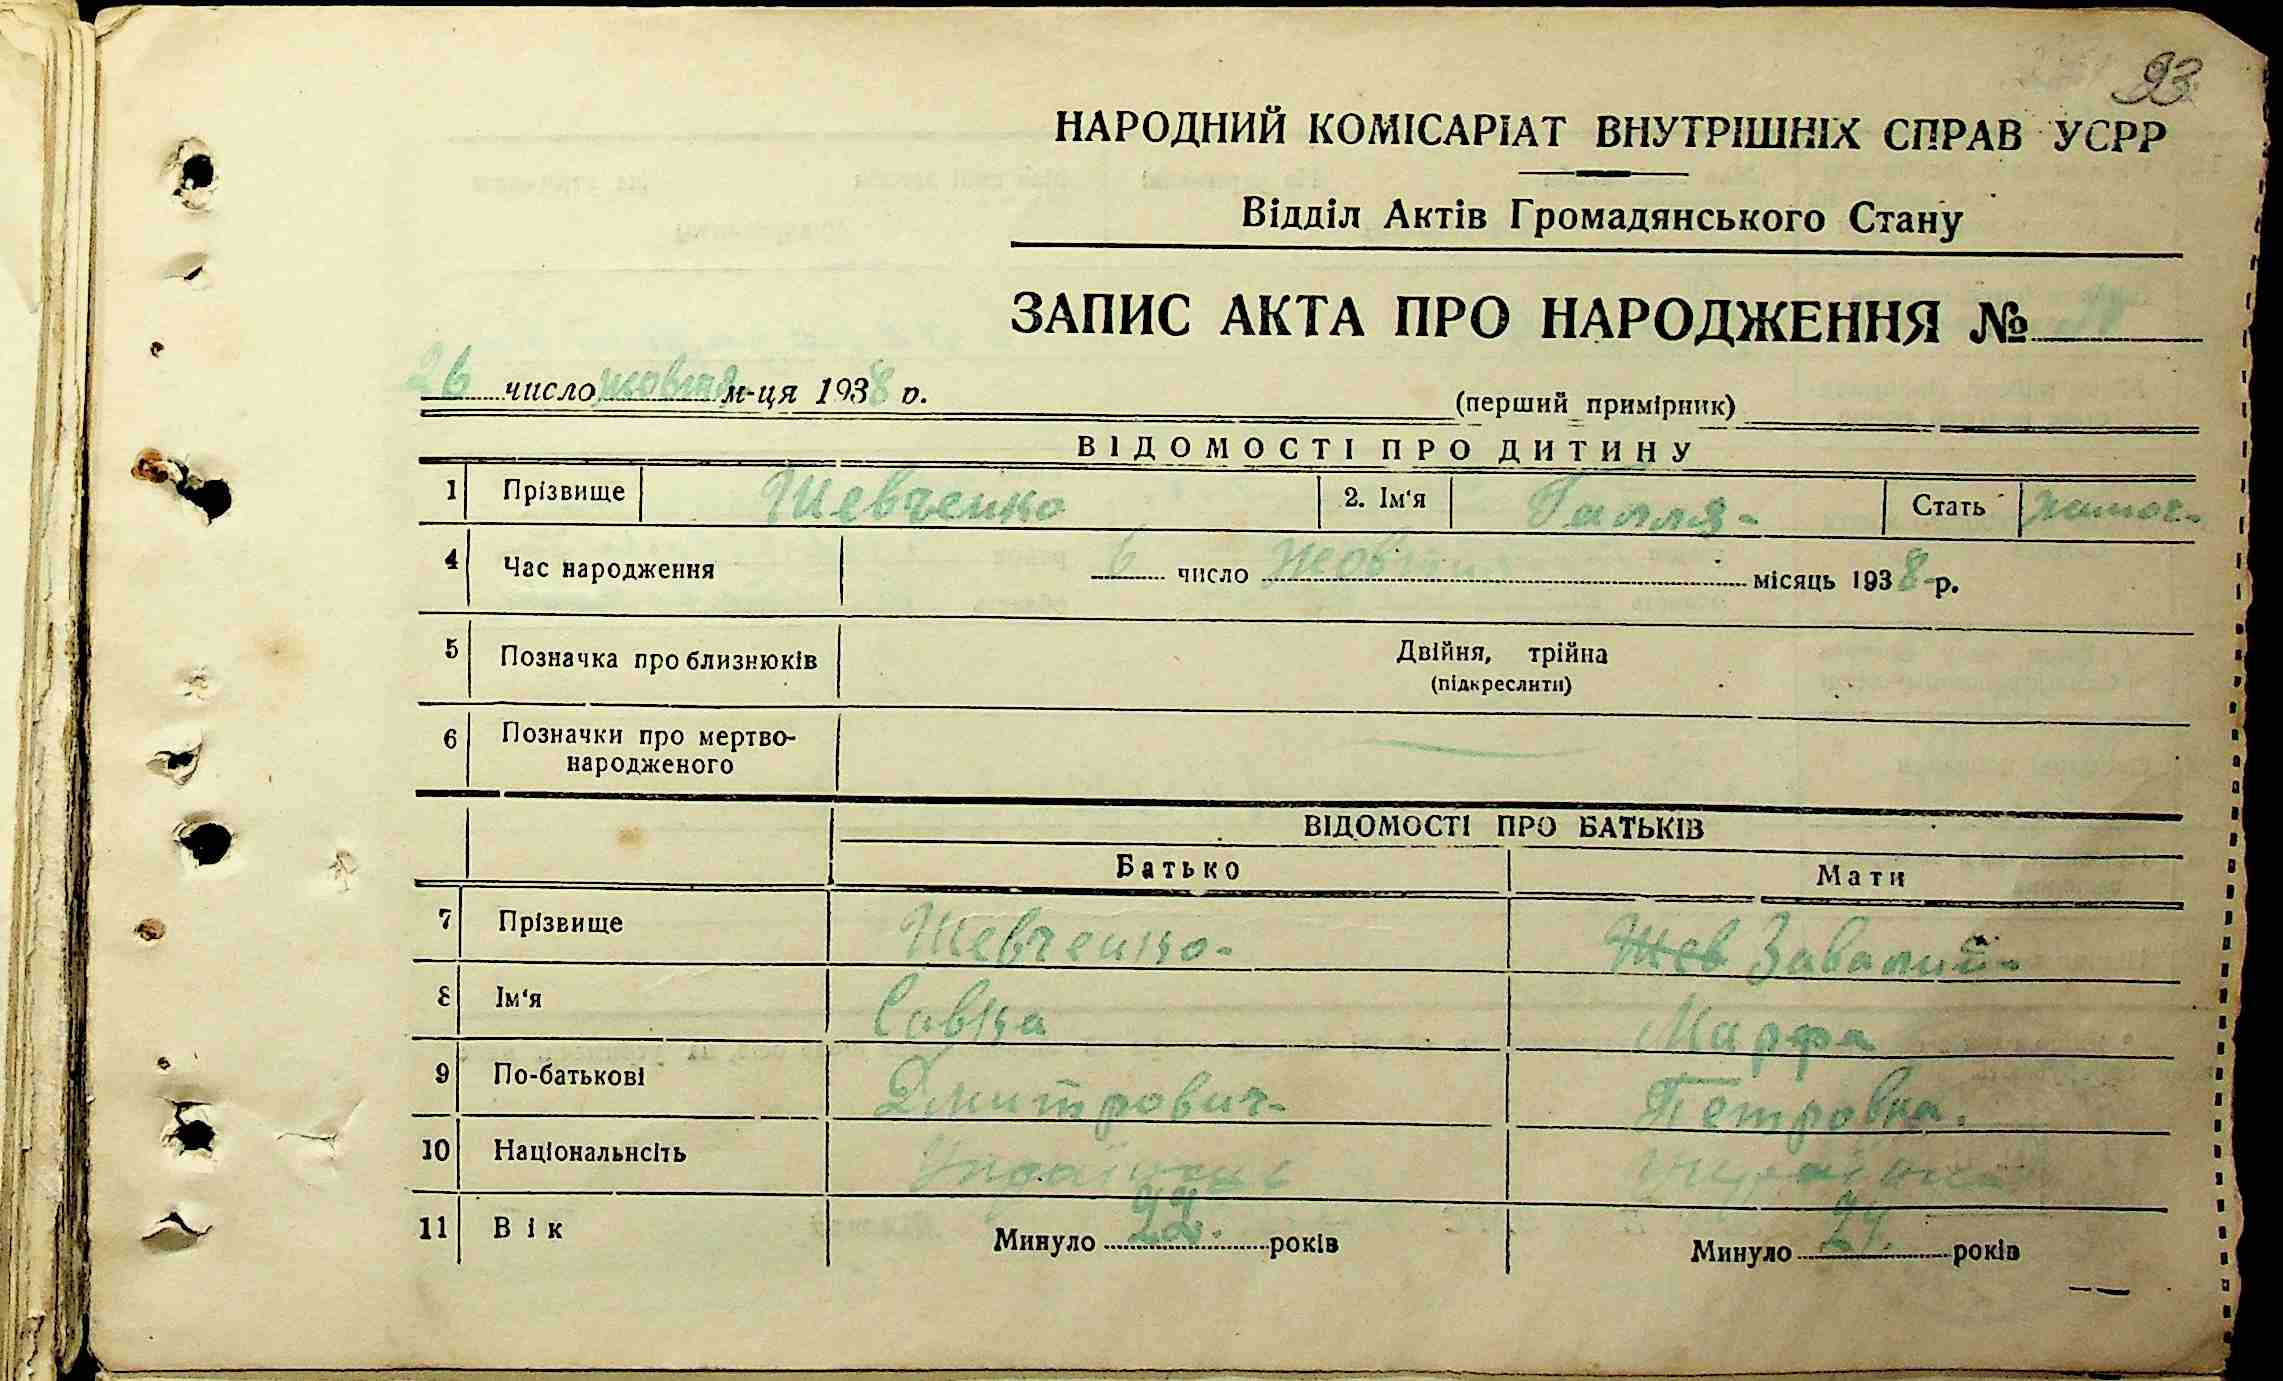 93
НАРОДНИЙ КОМІСАРІАТ ВНУТРІШНІХ СПРАВ УСРР
Відділ Актів Громадянського Стану
ЗАПИС АКТА ПРО НАРОДЖЕННЯ №
26 число жовтня м-ця 1938 р.
(перший примірник)
ВІДОМОСТІ ПРО ДИТИНУ
1 Прізвище Шевченко 2. Ім'я Галля- Стать жіноч-
4 Час народження 6 число жовтня місяць 1938 р.
5 Позначка про близнюків Двійня, трійна
(підкреслити)
6 Позначки про мертво-
народженого
ВІДОМОСТІ ПРО БАТЬКІВ
Батько Мати
7 Прізвище Шевченко- Шев Завалий-
8 Ім'я Савка Марфа
9 По-батькові Дмитрович- Петровна.
10 Національнсіть Українец Українка
11 Вік Минуло 22. років Минуло 24. років